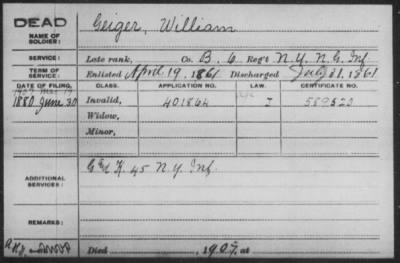 DEAD Geiger, William
NAME OF SOLDIER:
SERVICE: Late rank, Co. B. 6 Reg't N.Y. N.G. Inf.
TERM OF SERVICE: Enlisted April 19, 1861 Discharged July 31, 1861
DATE OF FILING. CLASS. APPLICATION NO. LAW. CERTIFICATE NO.
1880 June 30 Invalid, 401864 I
Widow,
Minor,
ADDITIONAL SERVICES: K. 45 N.Y. Inf.
REMARKS:
Died 1907, at